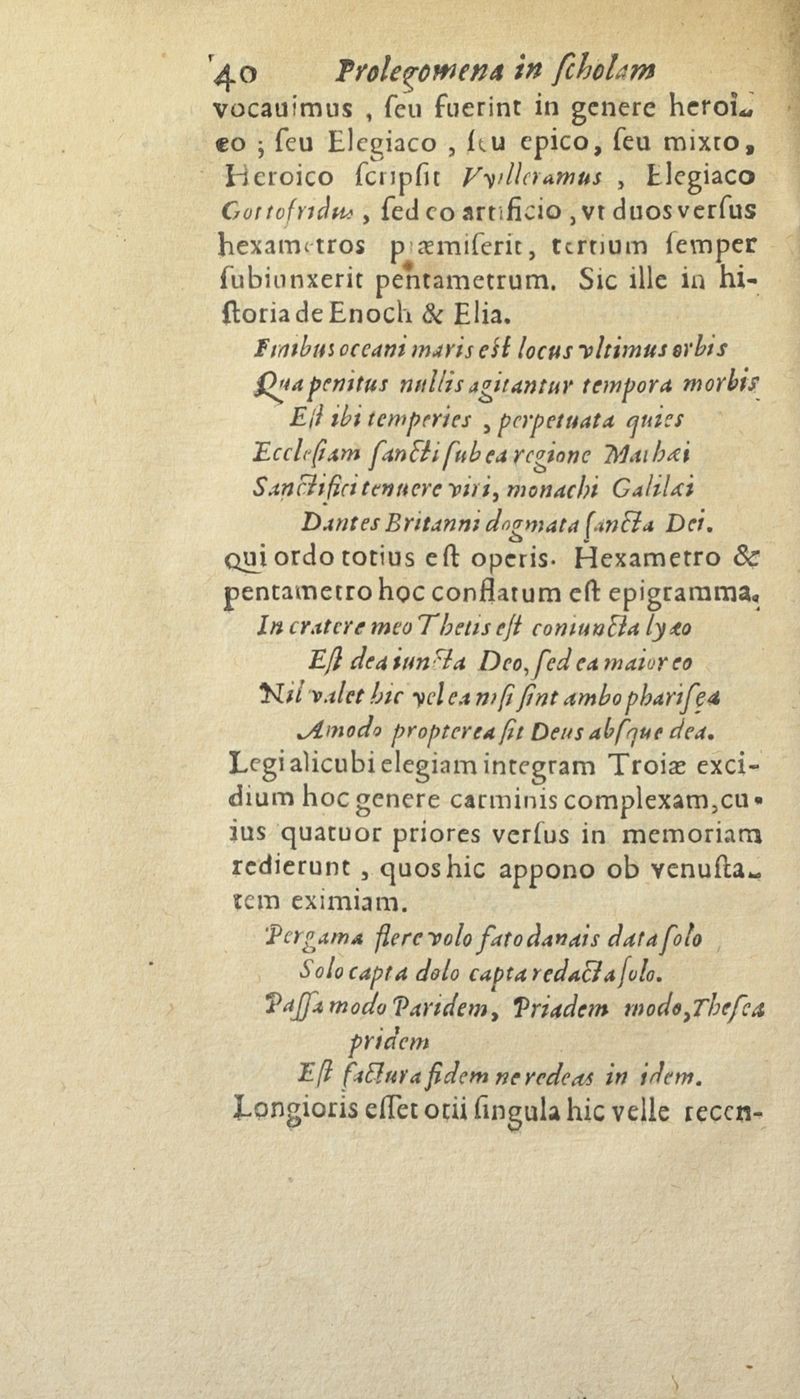 40 Prolegomena in ſcholam
vocauimus , ſeu fuerint in genere heroi-
co ; ſeu Elegiaco , ſeu epico, ſeu mixto,
Heroico ſcripſit Vvilleramus , Elegiaco
Gottofridus , ſed eo artificio , vt duos verſus
hexametros præmiſerit, tertium ſemper
ſubiunxerit pentametrum. Sic ille in hi-
ſtoria de Enoch & Elia.
Finibus oceani maris eſt locus vltimus orbis
Qua penitus nullis agitantur tempora morbis
Eſt ibi temperies , perpetuata quies
Eccleſiam ſancti ſub ea regione Mathæi
Sanctifici tenuere viri, monachi Galilæi
Dantes Britanni dogmata ſancta Dei.
qui ordo totius eſt operis. Hexametro &
pentametro hoc conflatum eſt epigramma.
In cratere meo Thetis eſt coniuncta lyæo
Eſt dea iuncta Deo, ſed ea maior eo
Nil valet hic vel ea niſi ſint ambo phariſea
Amodo propterea ſit Deus abſque dea.
Legi alicubi elegiam integram Troiæ exci-
dium hoc genere carminis complexam,cu-
ius quatuor priores verſus in memoriam
redierunt , quos hic appono ob venuſta-
tem eximiam.
Pergama flere volo fato danais data ſolo
Solo capta dolo capta redacta ſolo.
Paſſa modo Paridem, Priadem modo,Theſea
pridem
Eſt factura fidem ne redeas in idem.
Longioris eſſet otii ſingula hic velle recen-